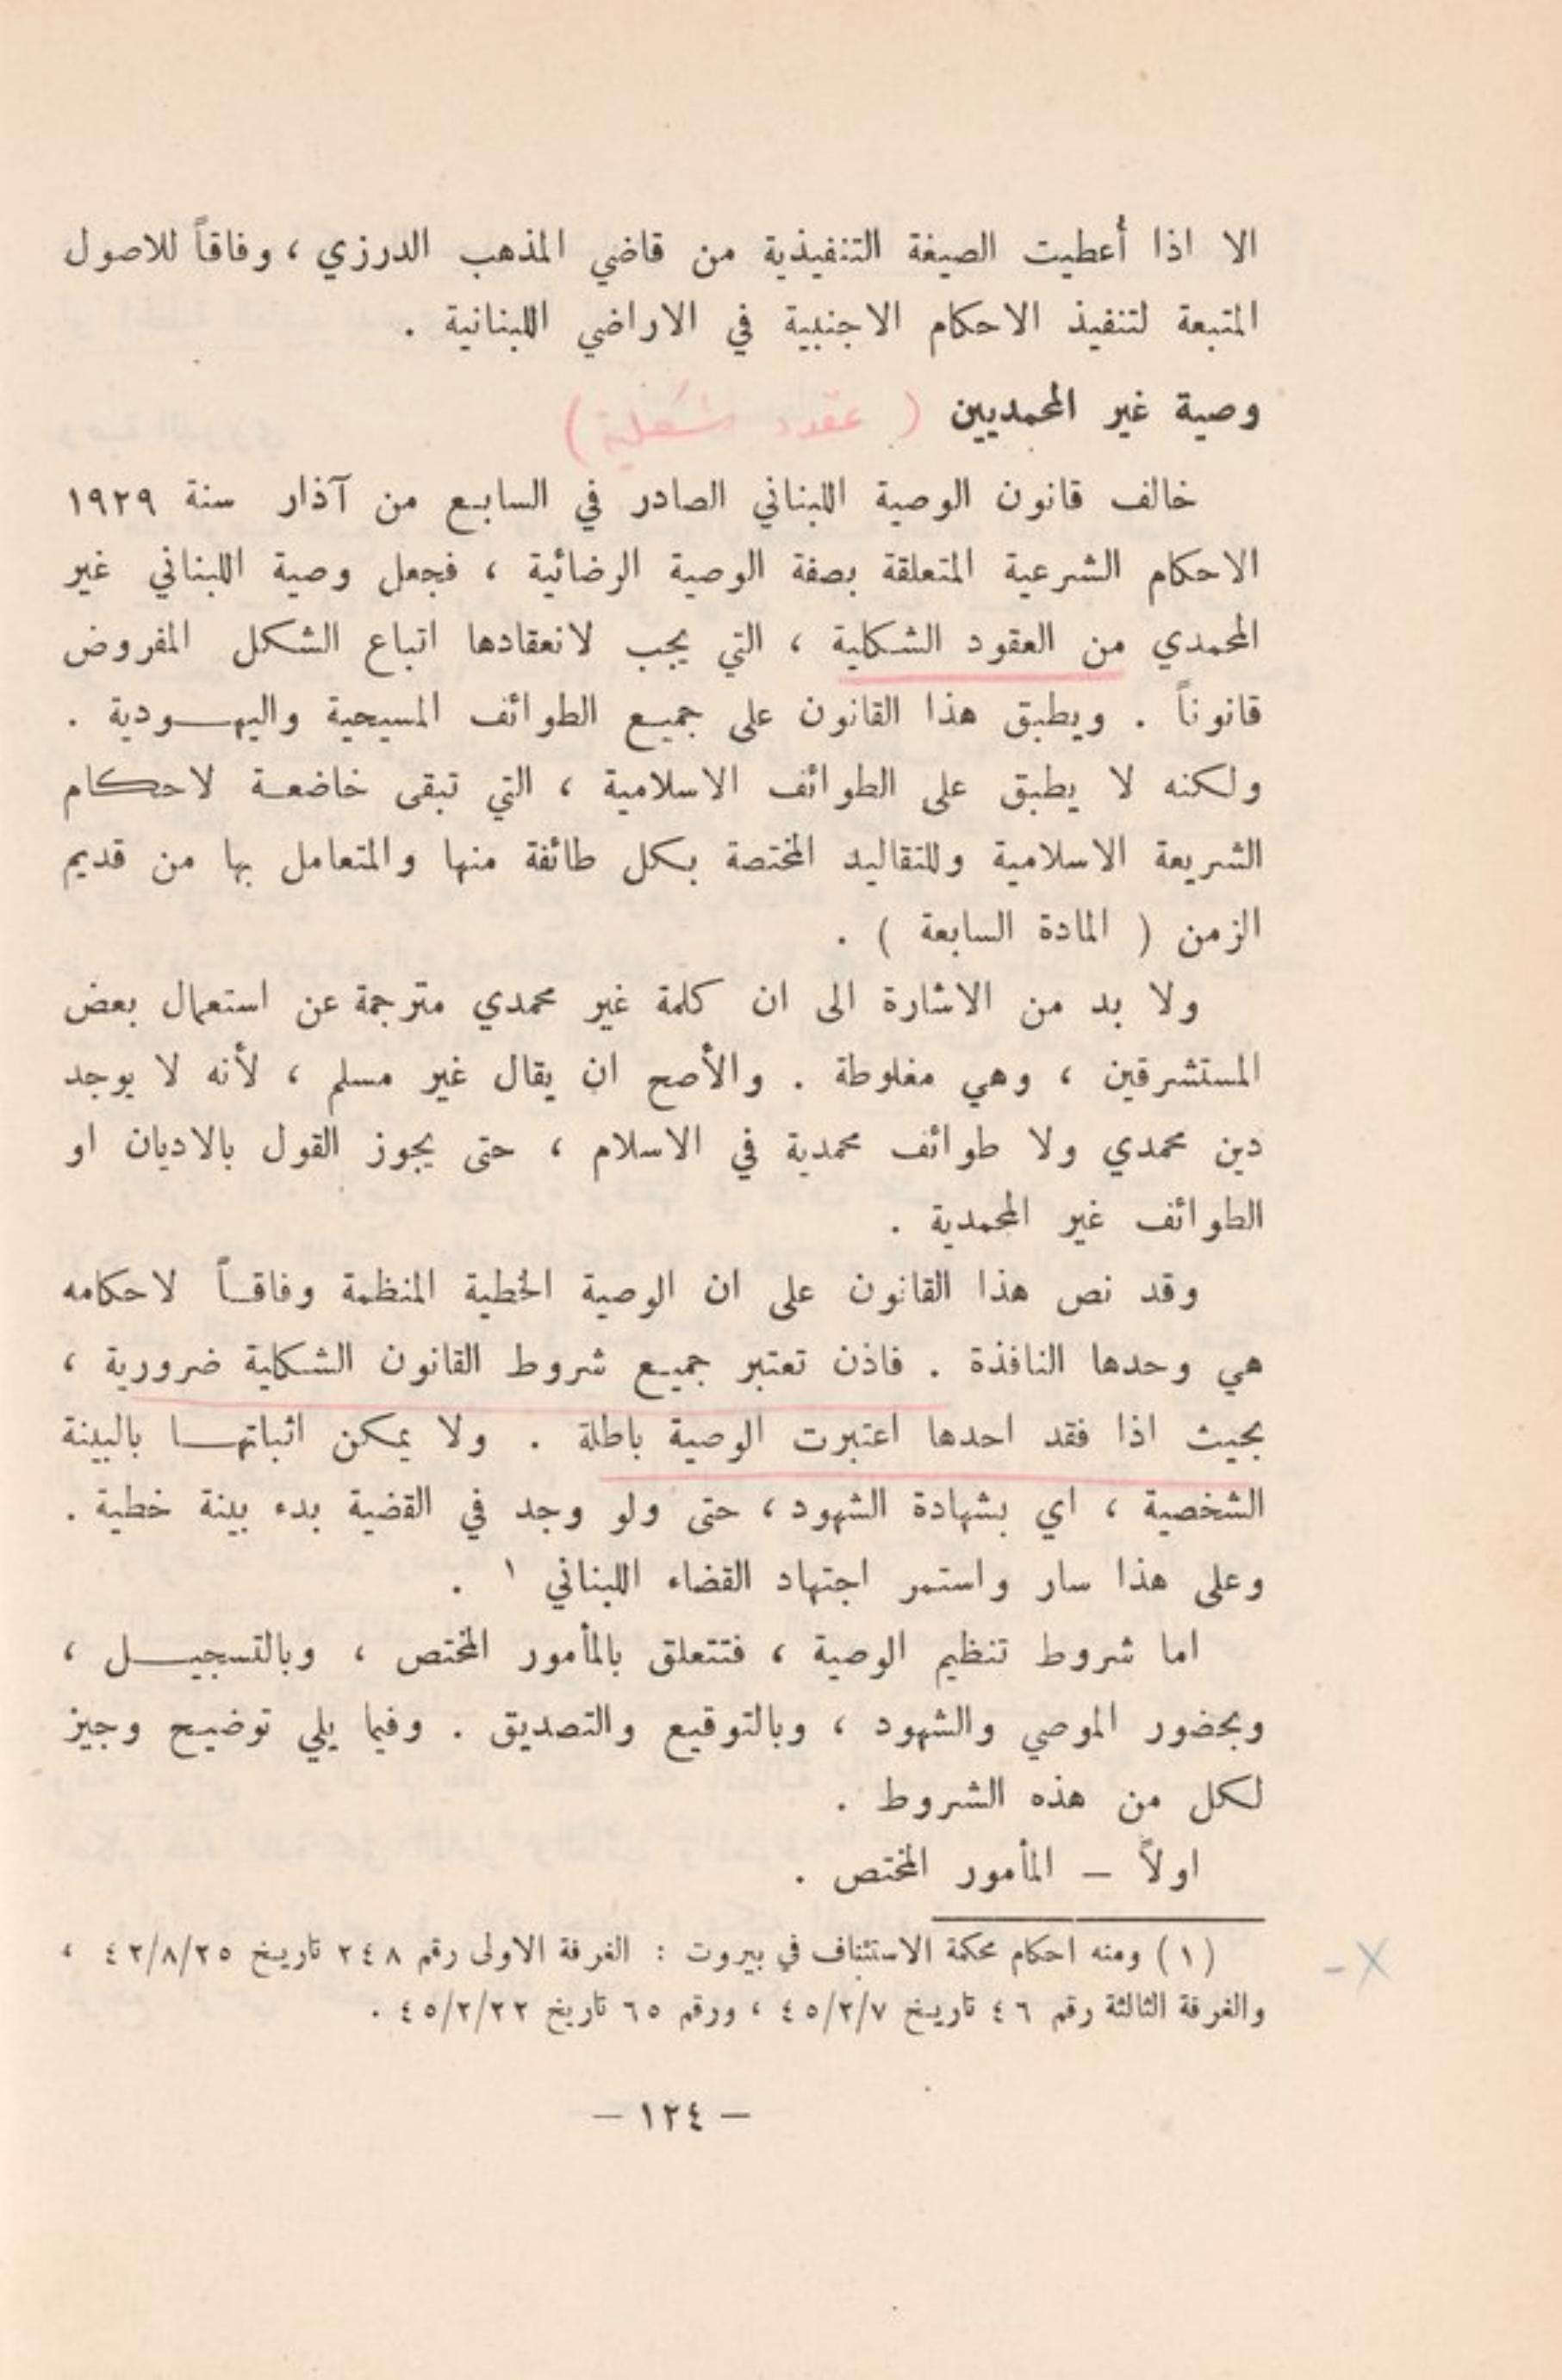 الا اذا أعطيت الصيغة التنفيذية من قاضي المذهب الدرزي ، وفاقاً للاصول
المتبعة لتنفيذ الاحكام الاجنبية في الاراضي اللبنانية .
وصية غير المحمديين ( عقود شكلية )
خالف قانون الوصية اللبناني الصادر في السابع من آذار سنة ١٩٢٩
الاحكام الشرعية المتعلقة بصفة الوصية الرضائية ، فجعل وصية اللبناني غير
المحمدي من العقود الشكلية ، التي يجب لانعقادها اتباع الشكل المفروض
قانوناً . ويطبق هذا القانون على جميع الطوائف المسيحية واليهودية .
ولكنه لا يطبق على الطوائف الاسلامية ، التي تبقى خاضعة لاحكام
الشريعة الاسلامية وللتقاليد المختصة بكل طائفة منها والمتعامل بها من قديم
الزمن ( المادة السابعة ) .
ولا بد من الاشارة الى ان كلمة غير محمدي مترجمة عن استعمال بعض
المستشرقين ، وهي مغلوطة . والأصح ان يقال غير مسلم ، لأنه لا يوجد
دين محمدي ولا طوائف محمدية في الاسلام ، حتى يجوز القول بالاديان او
الطوائف غير المحمدية .
وقد نص هذا القانون على ان الوصية الخطية المنظمة وفاقاً لاحكامه
هي وحدها النافذة . فاذن تعتبر جميع شروط القانون الشكلية ضرورية ،
بحيث اذا فقد احدها اعتبرت الوصية باطلة . ولا يمكن اثباتها بالبينة
الشخصية ، اي بشهادة الشهود ، حتى ولو وجد في القضية بدء بينة خطية .
وعلى هذا سار واستمر اجتهاد القضاء اللبناني ١ .
اما شروط تنظيم الوصية ، فتتعلق بالمأمور المختص ، وبالتسجيل ،
وبحضور الموصي والشهود ، وبالتوقيع والتصديق . وفيما يلي توضيح وجيز
لكل من هذه الشروط .
اولاً – المأمور المختص .
(١) ومنه احكام محكمة الاستئناف في بيروت : الغرفة الاولى رقم ٢٤٨ تاريخ ٤٢/٨/٢٥ ،
والغرفة الثالثة رقم ٤٦ تاريخ ٤٥/٢/٧ ، ورقم ٦٥ تاريخ ٤٥/٢/٢٢ .
– ١٢٤ –